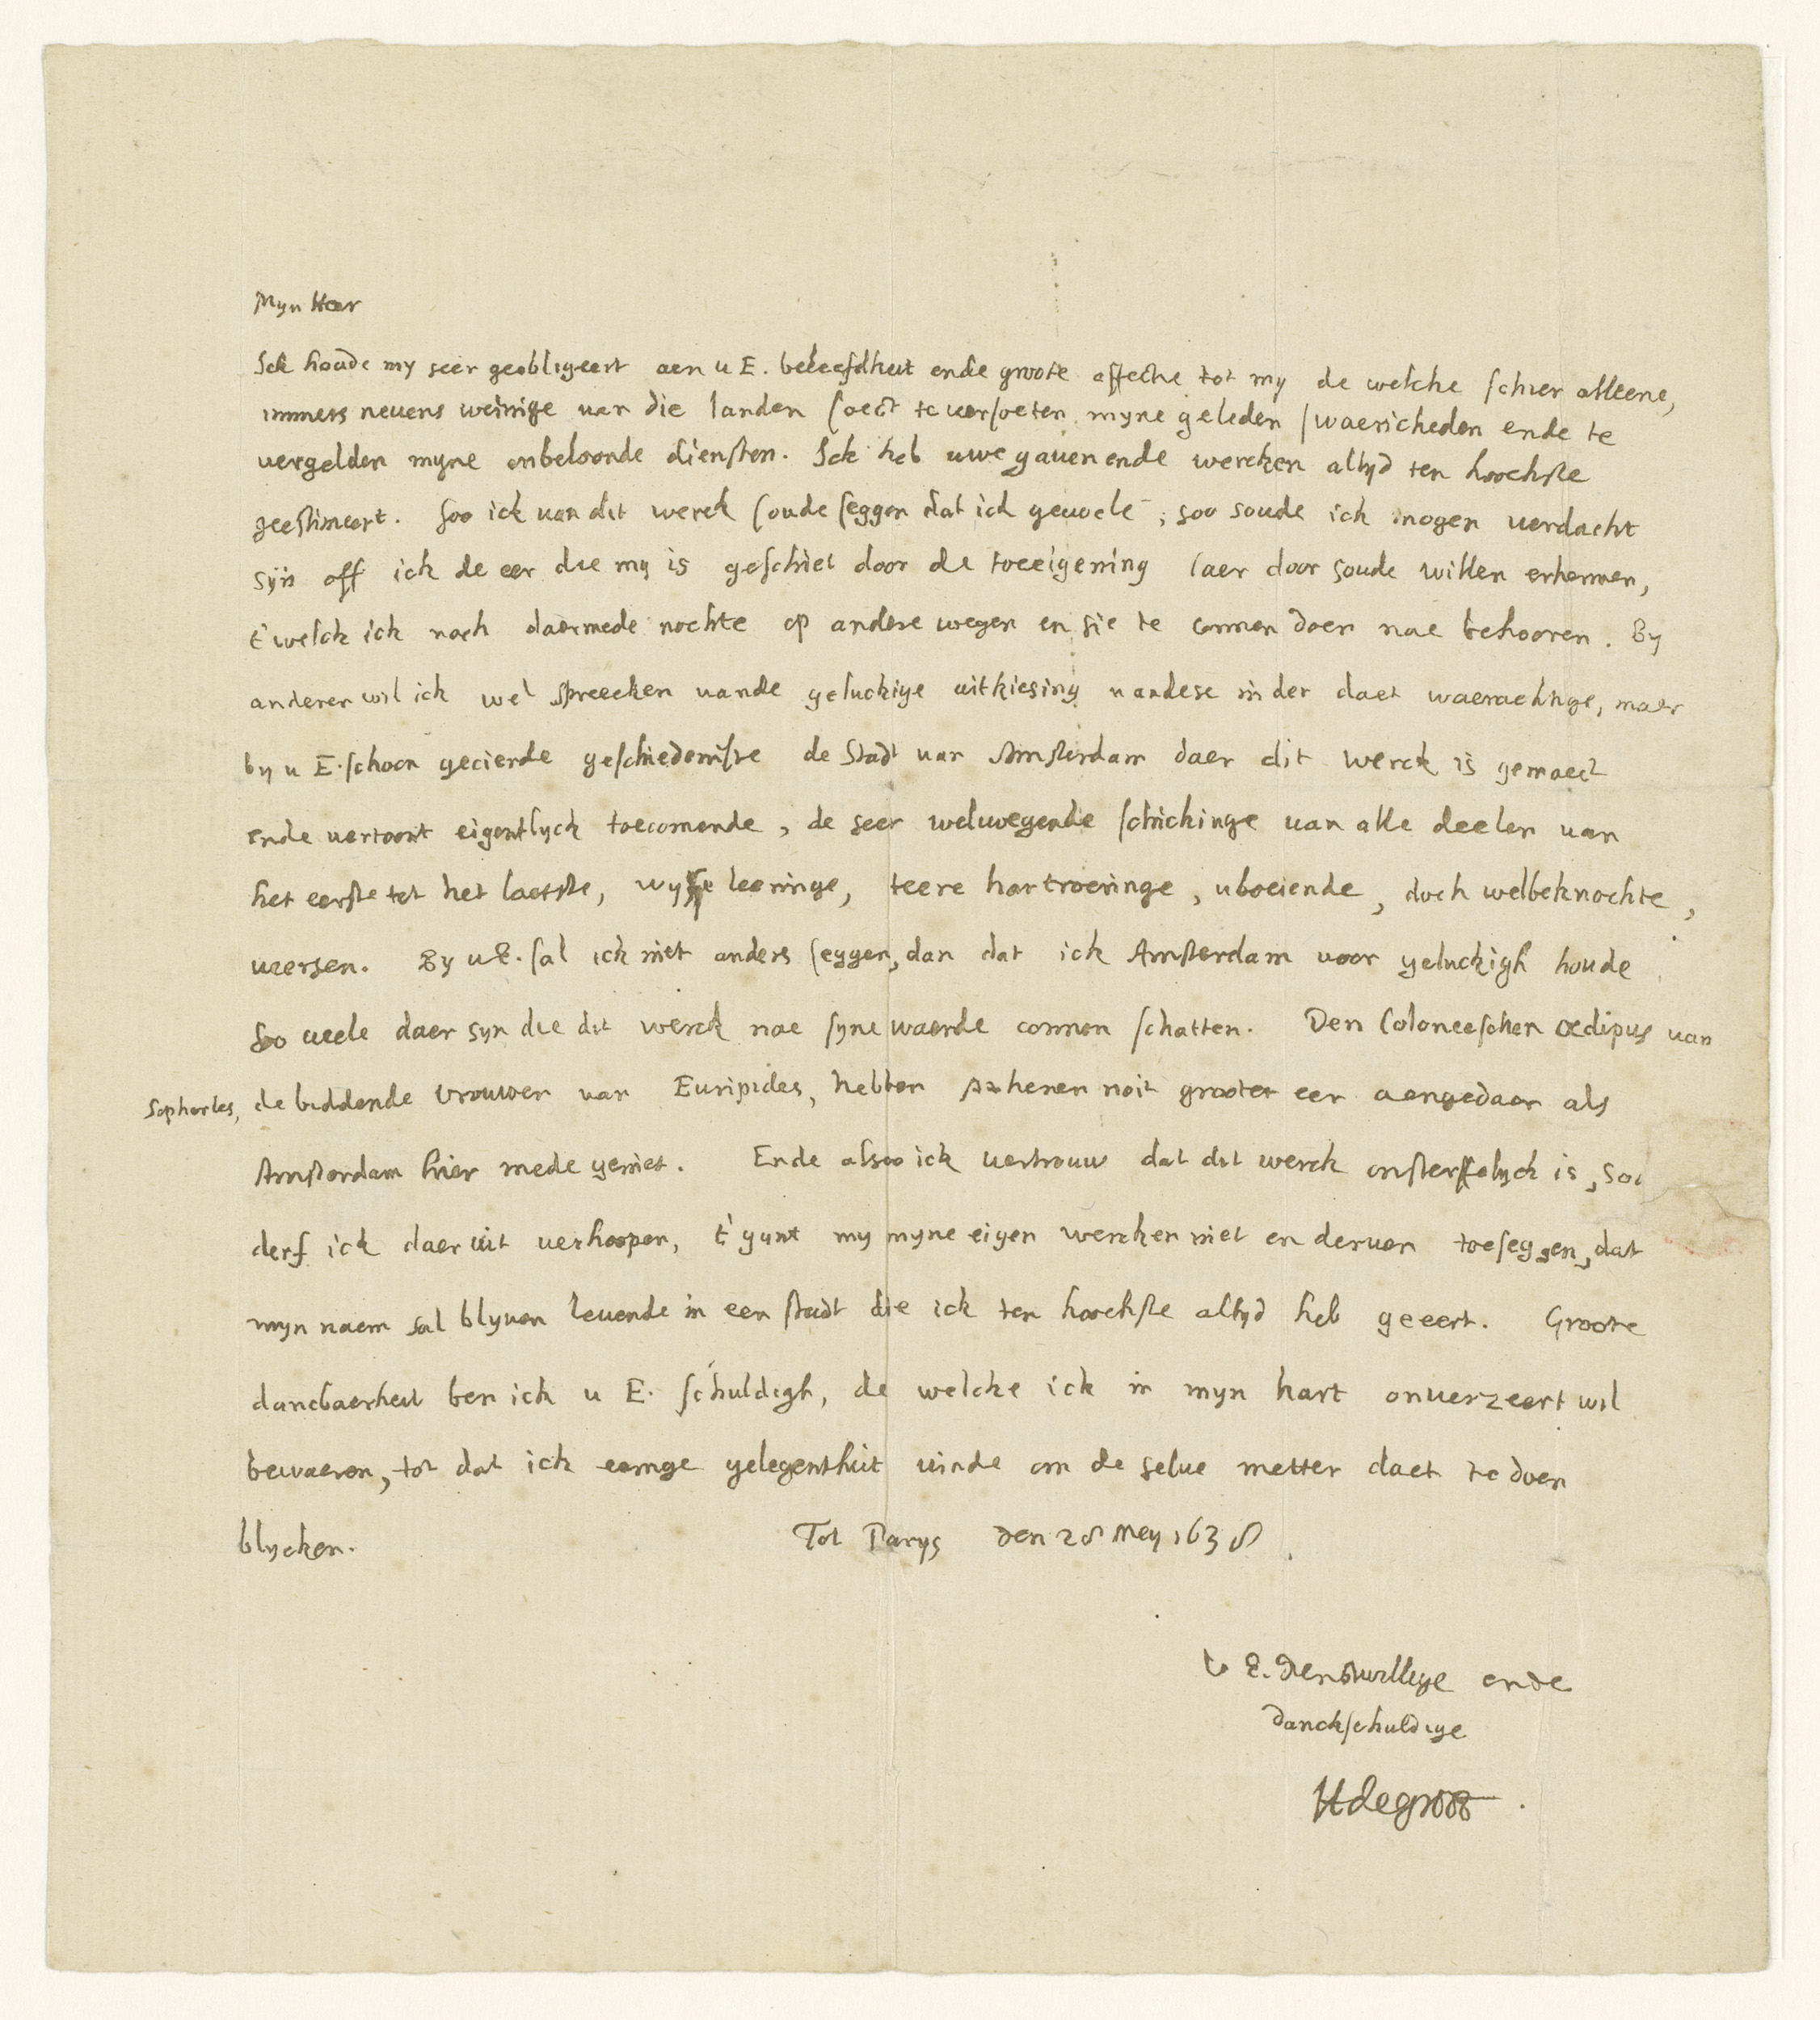 Myn Heer
Ick houde my seer geobligeert aen u E. beleefdheit ende groote affectie tot my de welcke schier alleene,
immers nevens weinige van die landen soect te versoeten myne geleden swaericheden ende te
vergelden myne onbeloonde diensten. Ick heb uwe gaven ende wercken altyd ten hoochste
geestimeert. Soo ick van dit werck soude seggen dat ick gevoele, soo soude ick mogen verdacht
syn off ick de eer die my is geschiet door de toeeigening daer door soude willen erkennen,
t'welck ick noch daermede nochte op andere wegen en sie te connen doen nae behooren. By
anderen wil ick wel spreecken vande geluckige uitkiesing van dese in der daet waerachtige, maer
by u E. schoon gecierde geschiedenisse de Stadt van Amsterdam daer dit werck is gemaect
ende vertoont eigentlyck toecomende, de seer welwegende schickinge van alle deelen van
het eerste tot het laetste, wyse leeringe, teere hartroeringe, vloeiende, doch welbeknochte,
veersen. By u E. sal ick niet anders seggen, dan dat ick Amsterdam voor geluckigh houde
soo veele daer syn die dit werck nae syne waerde connen schatten. Den Coloneeschen Oedipus van
Sophocles, de biddende vrouwen van Euripides, hebben Athenen noit grooter eer aengedaen als
Amsterdam hier mede geniet. Ende alsoo ick vertrouw dat dit werck onsterfelyck is, soo
derf ick daer uit verhoopen, t'gunt my myne eigen wercken niet en derven toeseggen, dat
myn naem sal blyven levende in een stadt die ick ten hoochste altyd heb geeert. Groote
dancbaerheit ben ick u E. schuldigh, de welcke ick in myn hart onverzeert wil
bewaeren, tot dat ick eenige gelegentheit vinde om de selve metter daet te doen
blycken. Tot Parys den 28 Mey 1638.
U E. Dienstwillige ende
danckschuldige
HdeGroot.